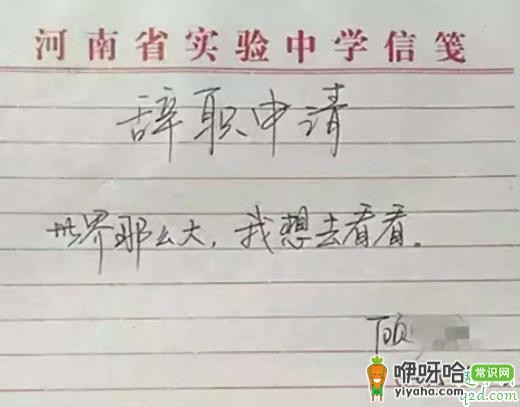 河南省实验中学信笺
辞职申请
世界那么大，我想去看看。
顾
咿呀哈 常识网
yiyaha.com
q2d.com